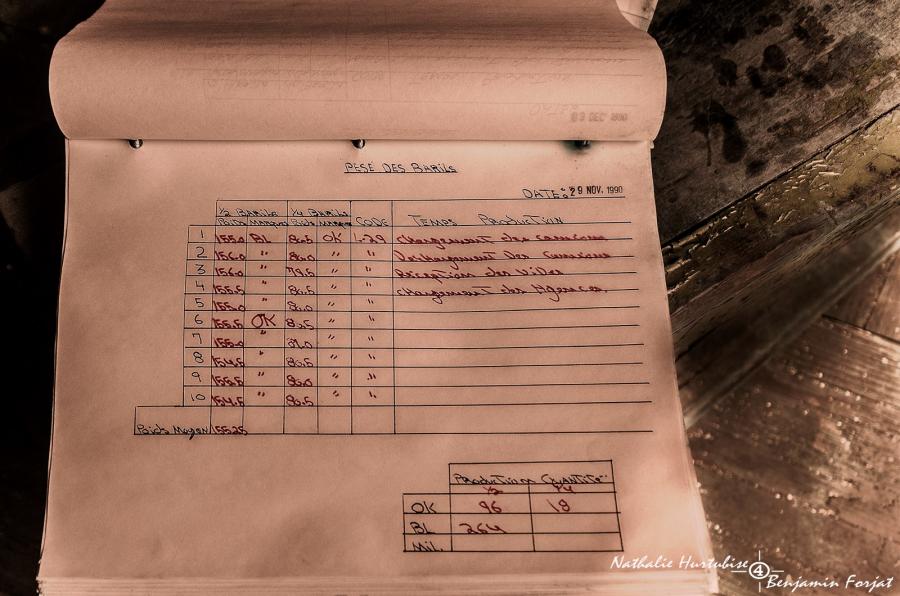 PESÉ DES BARILS
DATE: 29 NOV. 1990
1/2 BARILS 1/4 BARILS
Poids Marque Poids Marque CODE TEMPS PRODUCTION
1 155.0 BL 80.5 OK 1-29 chargement des camions
2 156.0 " 80.0 " " Déchargement Des Camions
3 156.0 " 79.5 " " Réception des vides
4 155.5 " 80.5 " " chargement des Agences.
5 155.0 " 80.0 " "
6 155.5 OK 80.5 " "
7 155.0 " " "
8 154.5 " 80.5 " "
9 155.5 " 80.0 " "
10 154.5 " 80.5 " "
Poids Moyen 155.25
PRODUCTION QUANTITÉ
1/2 1/4
OK 96 18
BL 264
MIL.
Nathalie Hurtubise 4
Benjamin Forjat